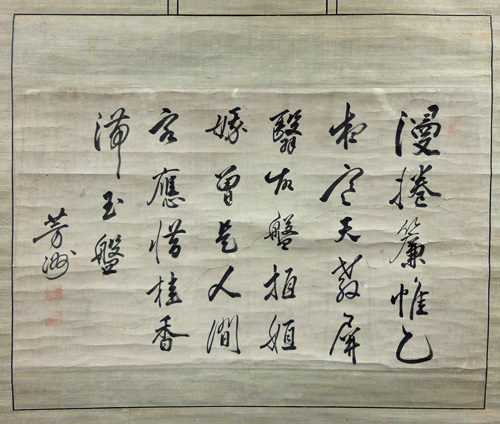 漫捲簾帷乙
夜寒天教屏
翳盤桓姮
娥曾是人間
客應惜桂香
滞玉盤
芳洲